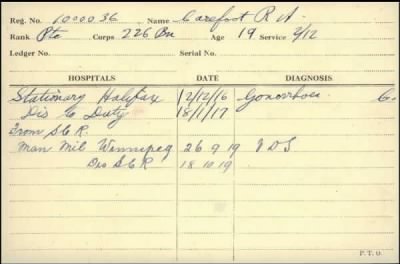 Reg. No. 1000036 Name Carefoot R A.
Rank Pte Corps 226 Bn Age 19 Service 2/12
Ledger No. Serial No.
HOSPITALS DATE DIAGNOSIS
Stationary Halifax 12/12/16 Gonorrhoea C.
Dis to Duty 18/1/17
From S.C.R.
Man Mil Winnipeg 26 9 19 V D S
Dis S C R 18.10.19
P. T. O.